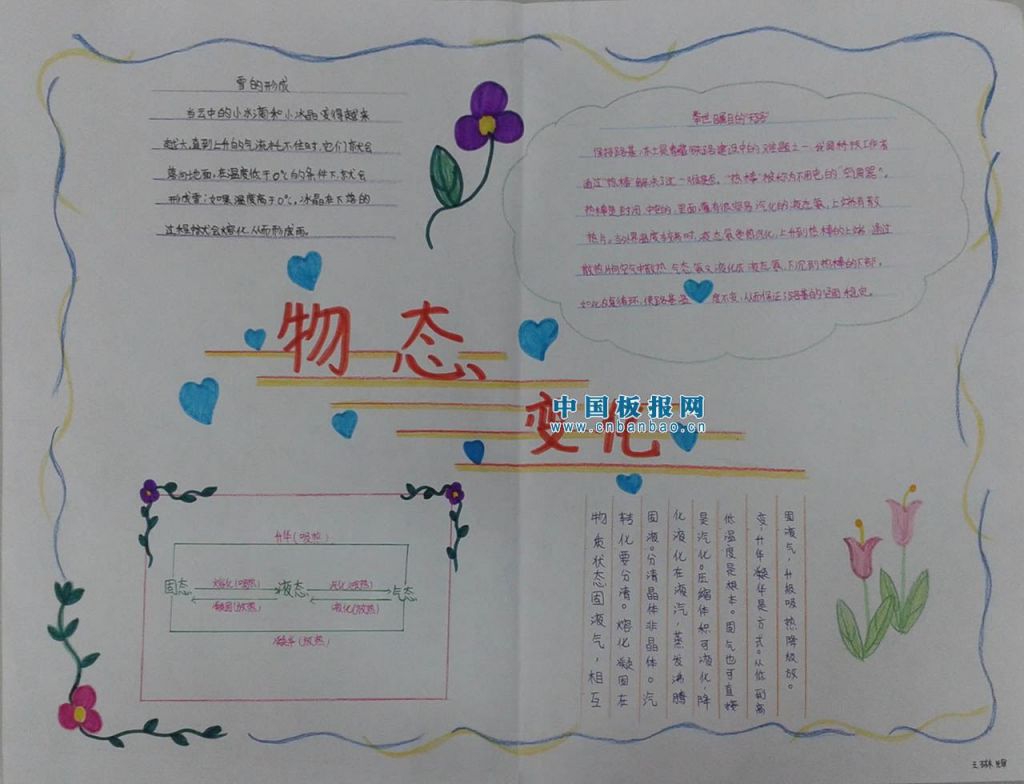 雪的形成
当云中的小水滴和小冰晶变得越来
越大,直到上升的气流托不住时,它们就会
落向地面,在温度低于0℃的条件下,就会
形成雪;如果温度高于0℃,冰晶在下落的
过程就会熔化,从而形成雨。
举世瞩目的
保持路基冻土是青藏铁路建设中的难题之一,我国科技工作者
通过"热棒"解决了这一难题。"热棒"被称为不用电的"空调器"。
热棒是封闭中空的,里面灌有很容易汽化的液态氨,上端有散
热片。当外界温度较高时,液态氨受热汽化,上升到热棒的上端,通过
散热片向空气中散热,气态氨又液化成液态氨,下沉到热棒的下部。
如此往复循环,使路基温度不变,从而保证了路基的坚固稳定。
物态
变化
中国板报网
www.cnbanbao.cn
升华(吸热)
固态
熔化(吸热)
凝固(放热)
液态
汽化(吸热)
液化(放热)
气态
凝华(放热)
固液气,升级吸热降级放。
变,升华凝华是方式。从低到高
低温度是根本。固气也可直接
是汽化。压缩体积可液化,降
化液化在液汽,蒸发沸腾
固液。分清晶体非晶体。汽
转化要分清。熔化凝固在
物质状态固液气,相互